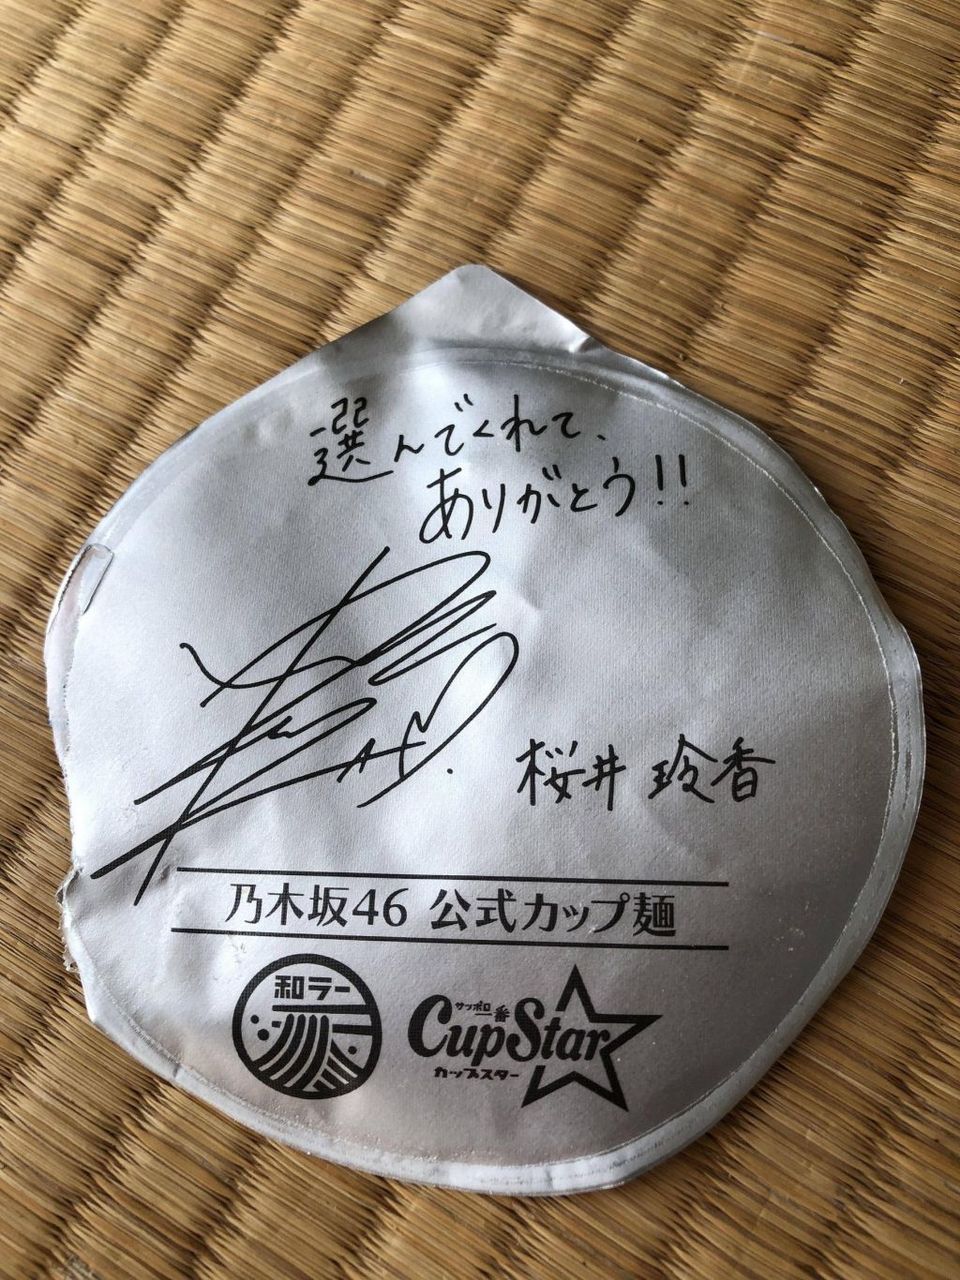 選んでくれて、
ありがとう!!
桜井 玲香
乃木坂46 公式カップ麺
和ラー
サッポロ一番
CupStar
カップスター